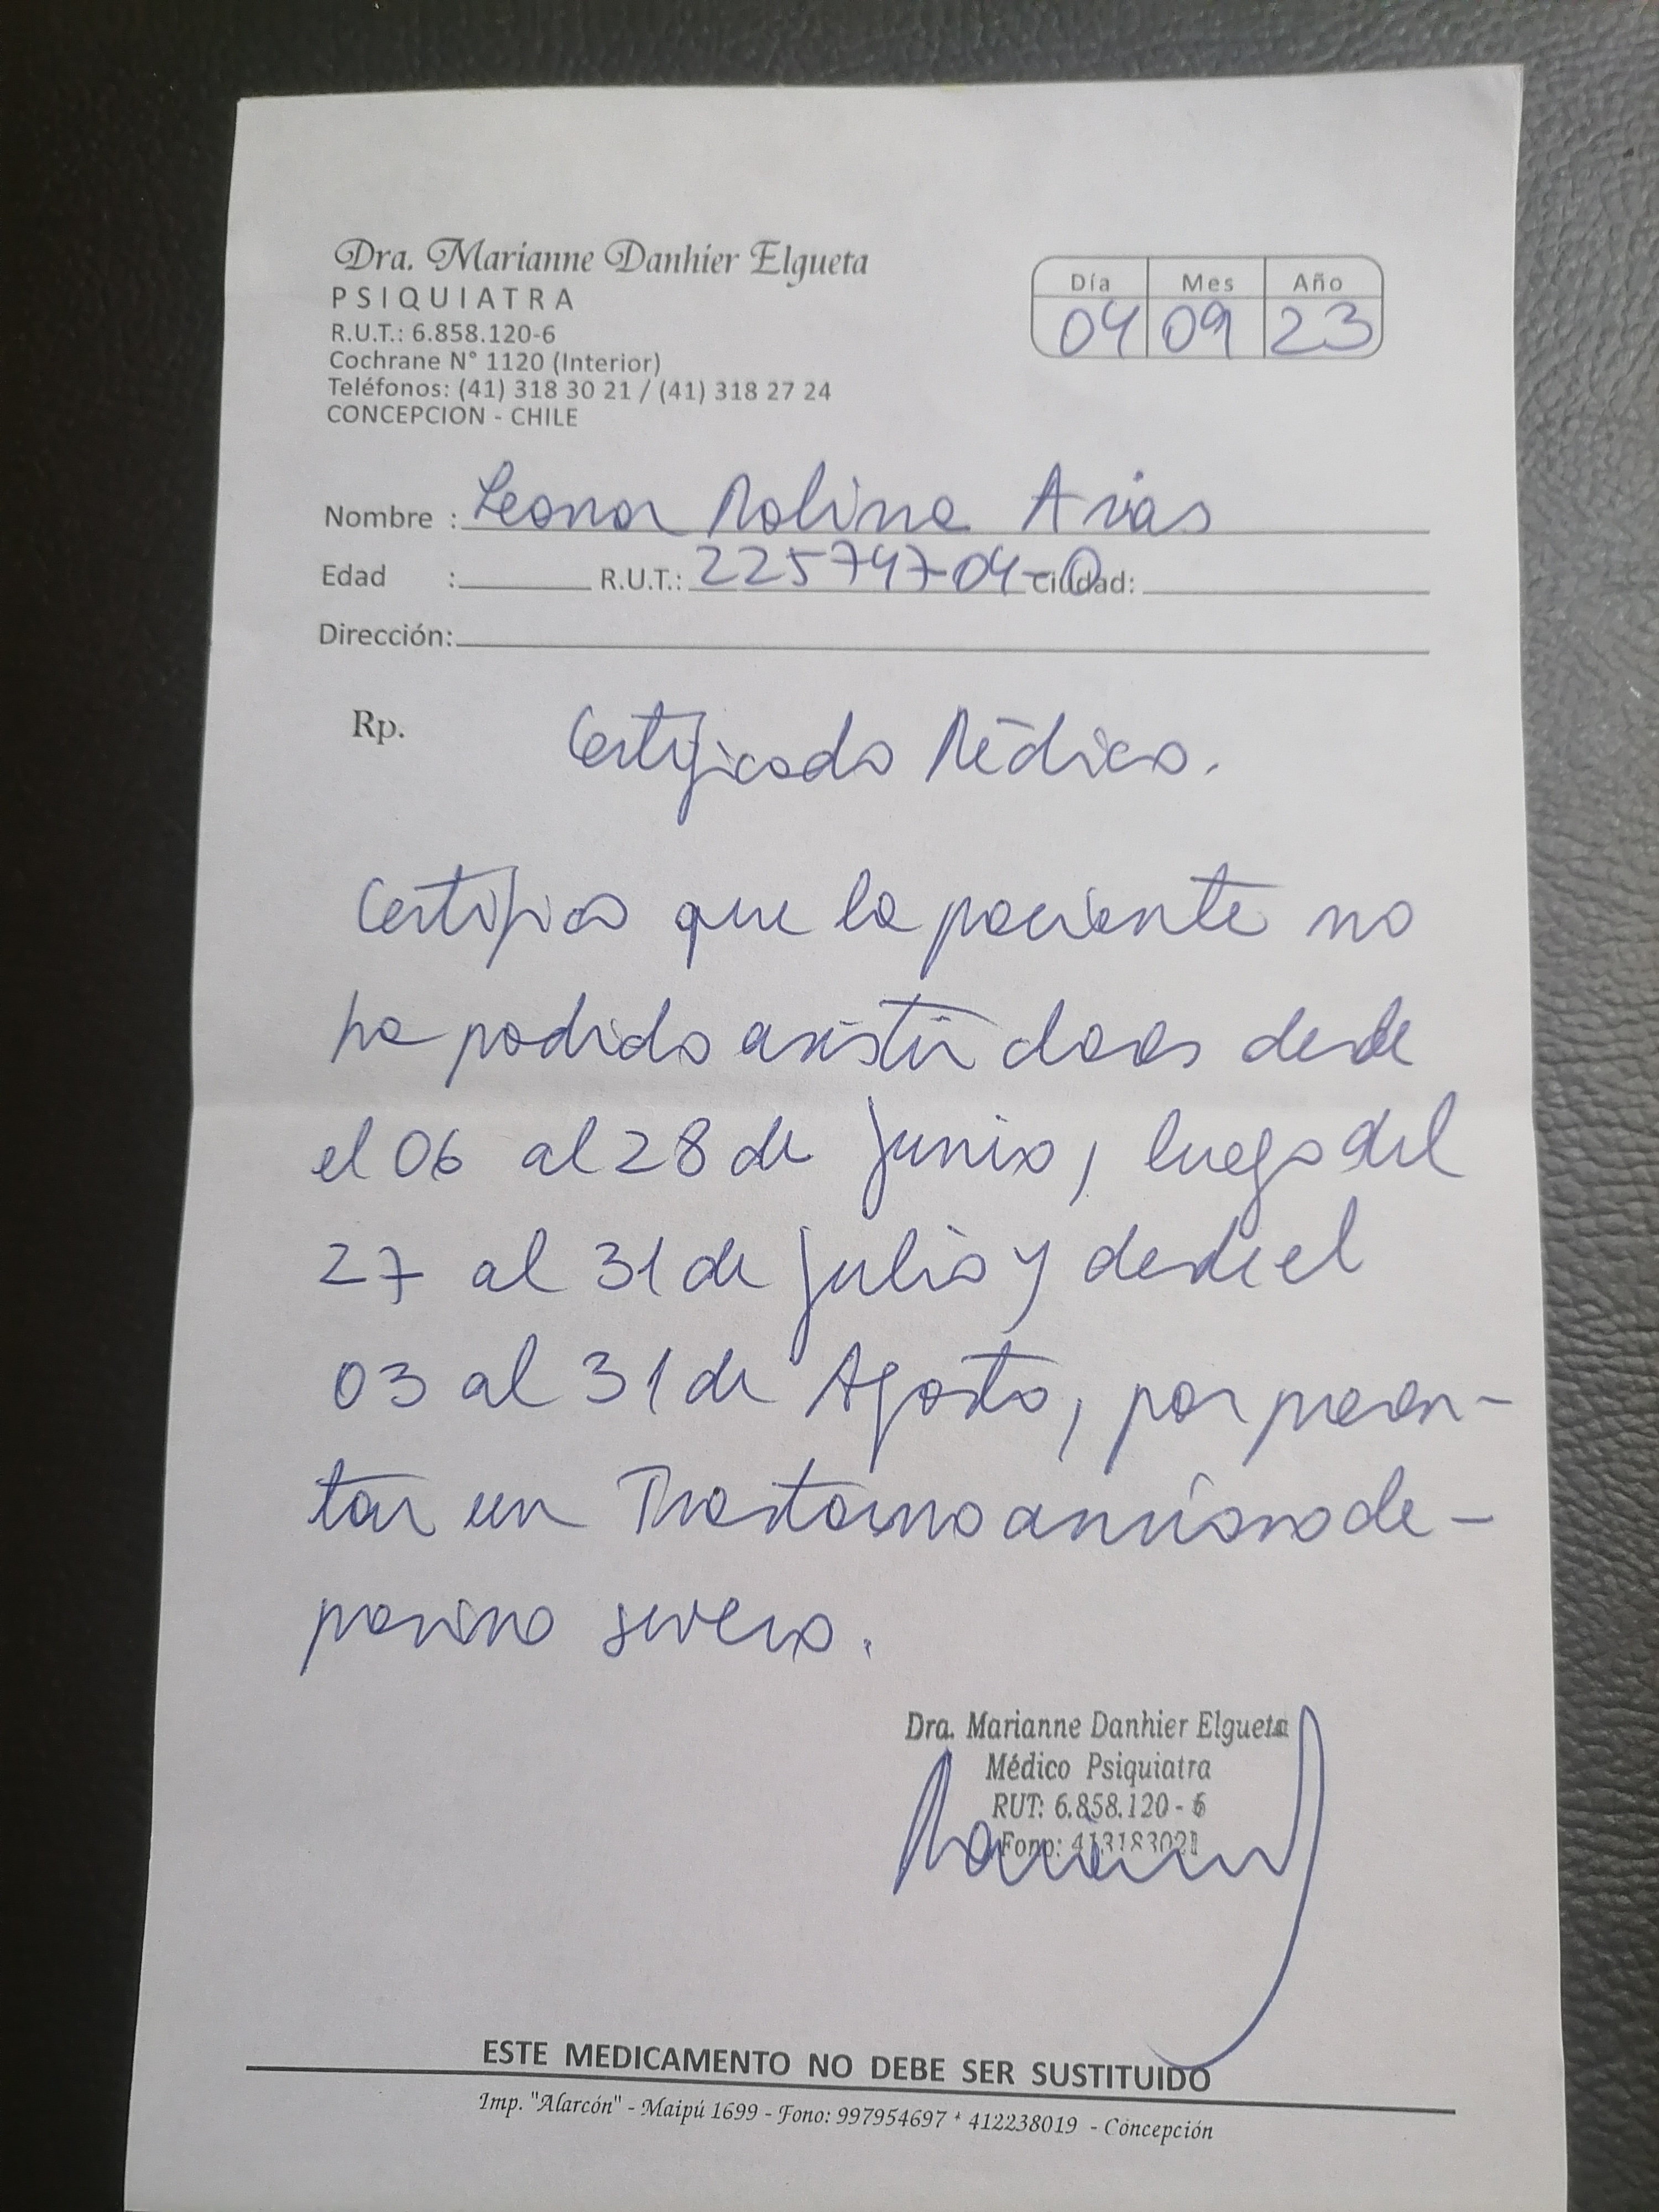 Dra. Marianne Danhier Elgueta
PSIQUIATRA
R.U.T.: 6.858.120-6
Cochrane N° 1120 (Interior)
Teléfonos: (41) 318 30 21 / (41) 318 27 24
CONCEPCION - CHILE
Día Mes Año
04 09 23
Nombre : Leonor Molina Arias
Edad : R.U.T.: 225747-04-0 Ciudad:
Dirección:
Rp. Certificado Médico.
Certifico que la paciente no
ha podido asistir clases desde
el 06 al 28 de Junio, luego del
27 al 31 de Julio y desde el
03 al 31 de Agosto, por presen-
tar un Trastorno ansioso de-
presivo severo.
Dra. Marianne Danhier Elgueta
Médico Psiquiatra
RUT: 6.858.120 - 6
Fono: 413183021
ESTE MEDICAMENTO NO DEBE SER SUSTITUIDO
Imp. "Alarcón" - Maipú 1699 - Fono: 997954697 * 412238019 - Concepción